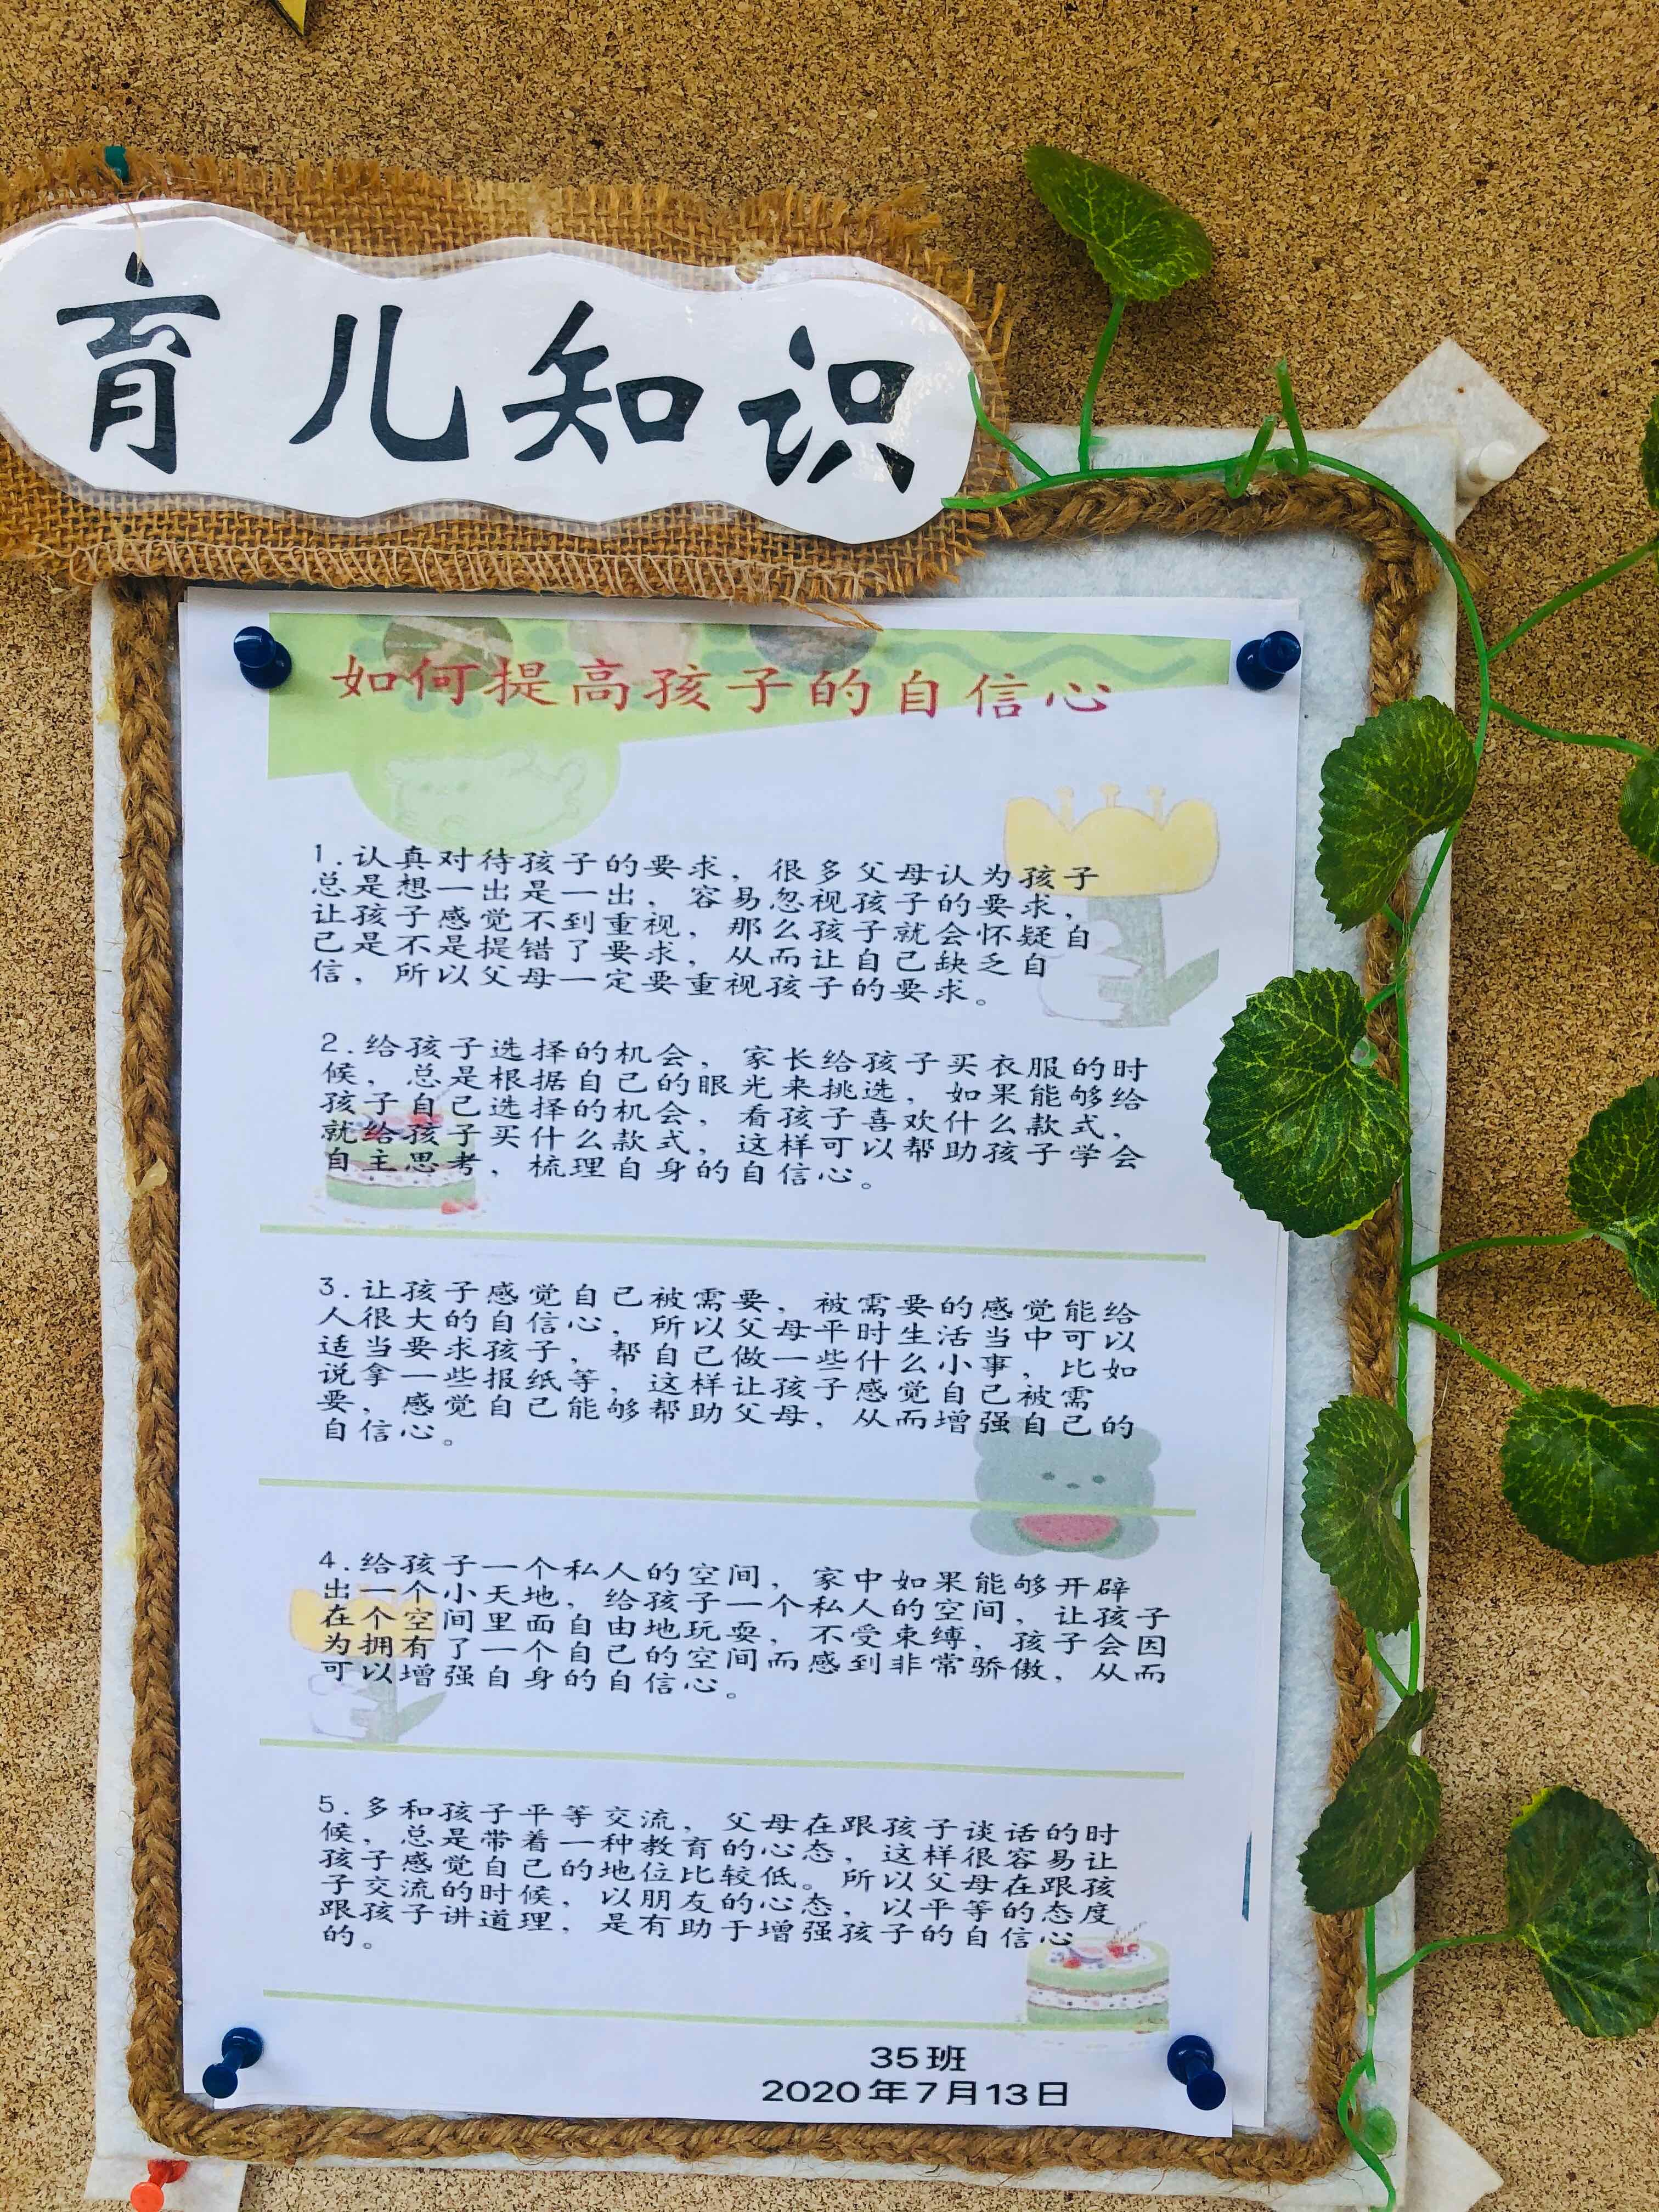 育儿知识
如何提高孩子的自信心
1.认真对待孩子的要求，很多父母认为孩子
总是想一出是一出，容易忽视孩子的要求，
让孩子感觉不到重视，那么孩子就会怀疑自
己是不是提错了要求，从而让自己缺乏自
信，所以父母一定要重视孩子的要求。
2.给孩子选择的机会，家长给孩子买衣服的时
候，总是根据自己的眼光来挑选，如果能够给
孩子自己选择的机会，看孩子喜欢什么款式，
就给孩子买什么款式，这样可以帮助孩子学会
自主思考，梳理自身的自信心。
3.让孩子感觉自己被需要，被需要的感觉能给
人很大的自信心，所以父母平时生活当中可以
适当要求孩子，帮自己做一些什么小事，比如
说拿一些报纸等，这样让孩子感觉自己被需
要，感觉自己能够帮助父母，从而增强自己的
自信心。
4.给孩子一个私人的空间，家中如果能够开辟
出一个小天地，给孩子一个私人的空间，让孩子
在个空间里面自由地玩耍，不受束缚，孩子会因
为拥有了一个自己的空间而感到非常骄傲，从而
可以增强自身的自信心。
5.多和孩子平等交流，父母在跟孩子谈话的时
候，总是带着一种教育的心态，这样很容易让
孩子感觉自己的地位比较低。所以父母在跟孩
子交流的时候，以朋友的心态，以平等的态度
跟孩子讲道理，是有助于增强孩子的自信心
的。
35班
2020年7月13日